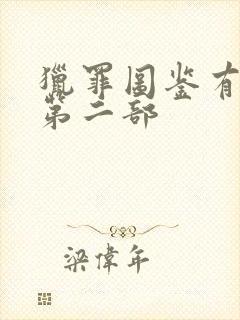 獵罪圖鉴有
第二部
梁偉年